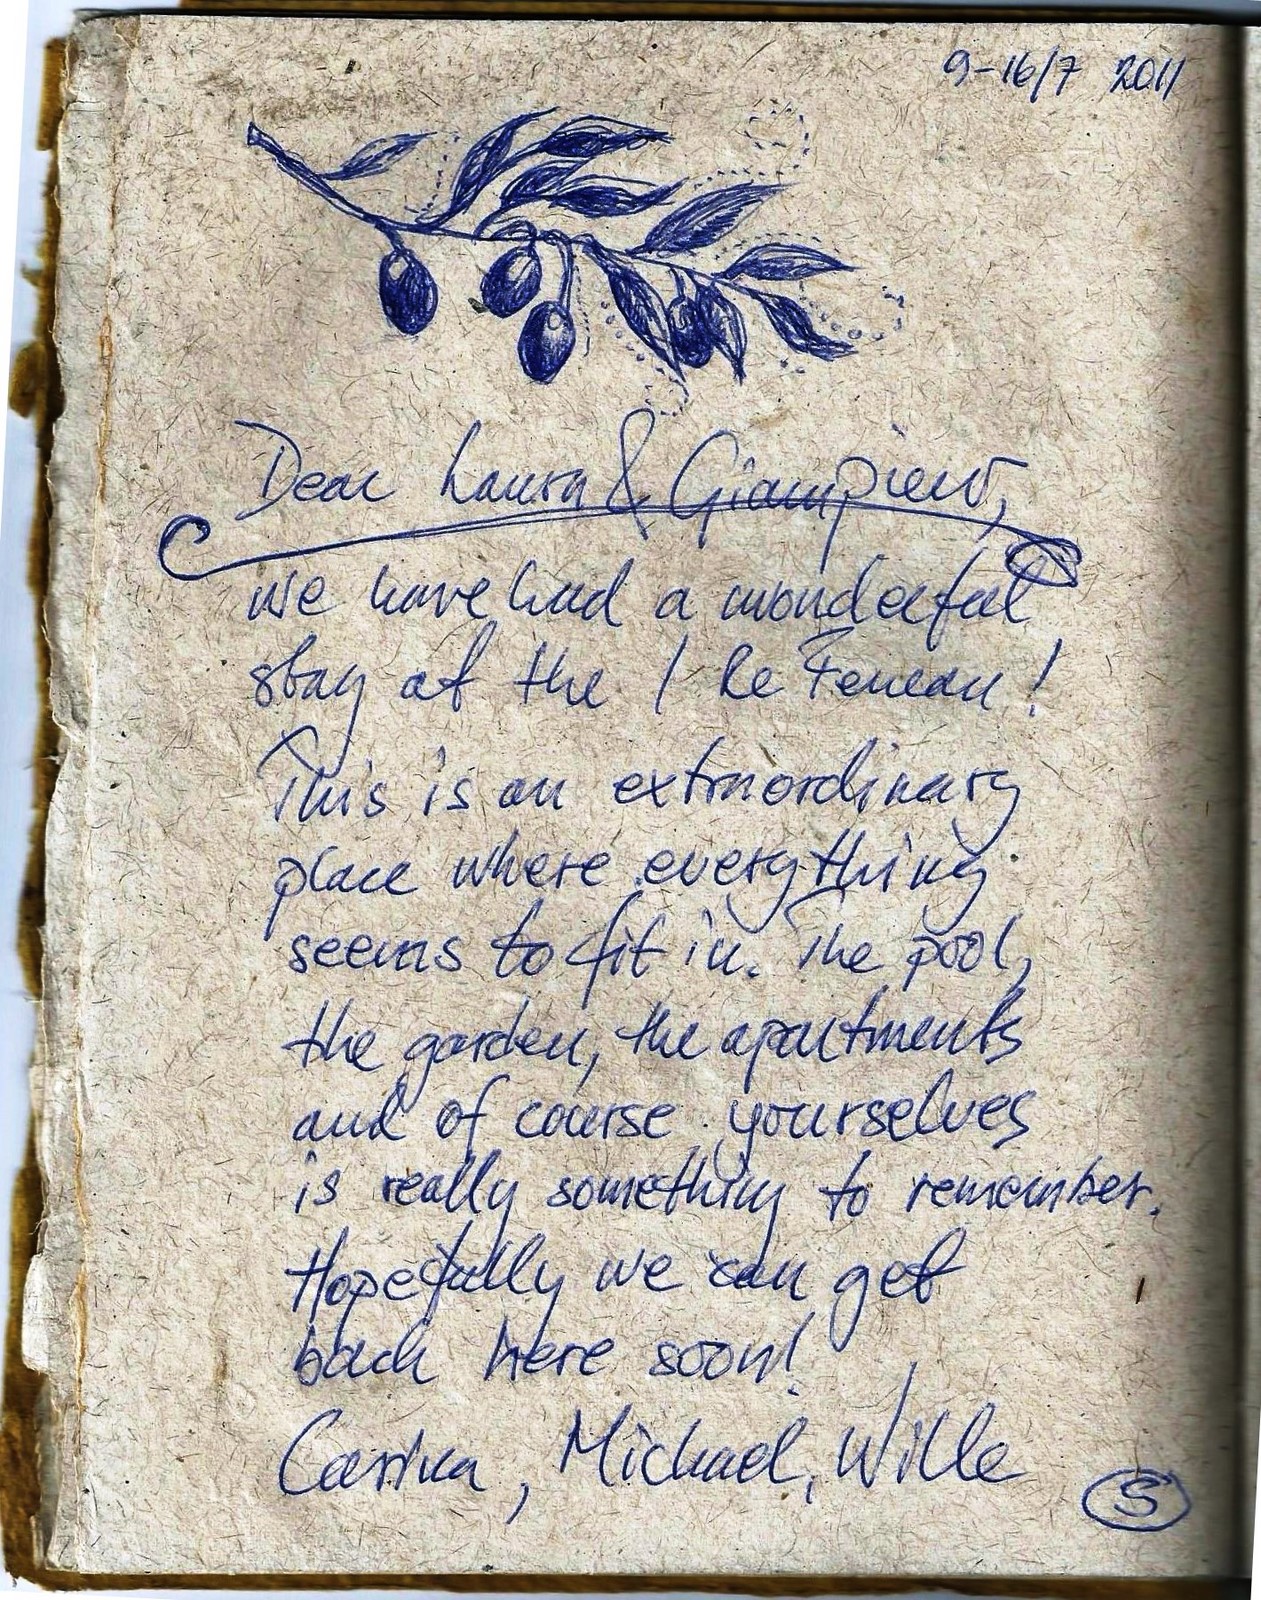 9-16/7 2011
Dear Laura & Giampiero,
we have had a wonderful
stay at the I Re Feneau!
This is an extraordinary
place where everything
seems to fit in. The pool,
the garden, the apartments
and of course yourselves
is really something to remember.
Hopefully we can get
back here soon!
Carina, Michael, Wille
S